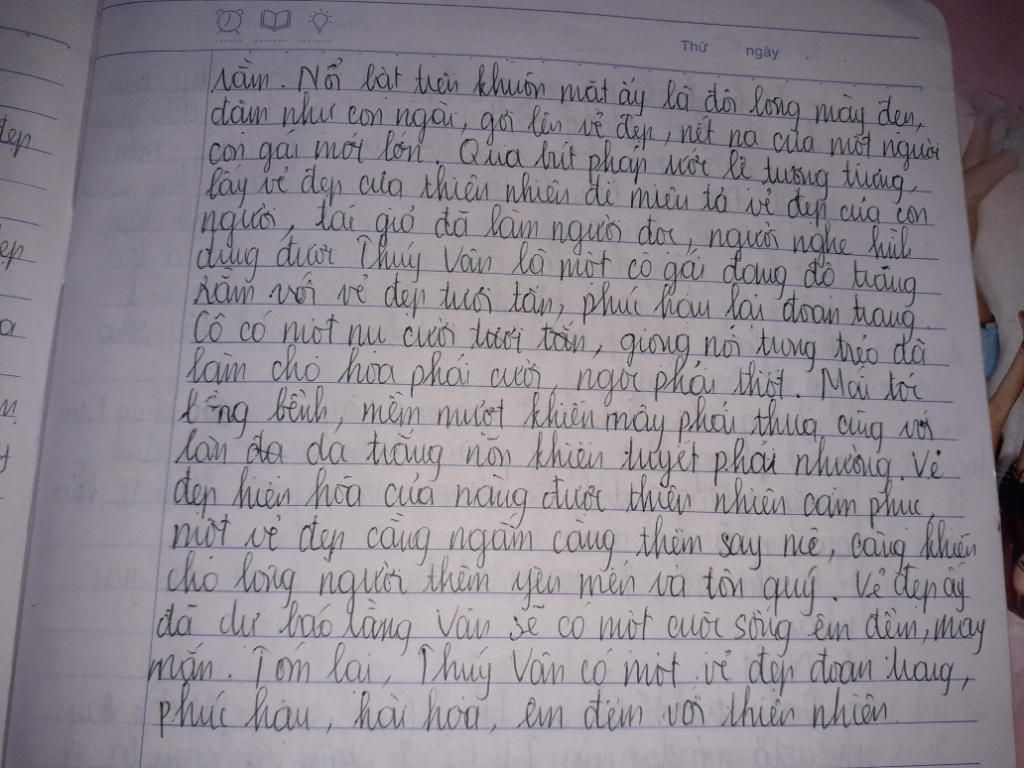 Thứ ngày
rằm. Nổi bật trên khuôn mặt ấy là đôi lông mày đen,
đậm như con ngài, gợi lên vẻ đẹp, nết na của một người
con gái mới lớn. Qua bút pháp ước lệ tượng trưng,
lấy vẻ đẹp của thiên nhiên để miêu tả vẻ đẹp của con
người, tác giả đã làm người đọc, người nghe hình
dung được Thúy Vân là một cô gái đang độ trăng
rằm với vẻ đẹp tươi tắn, phúc hậu lại đoan trang.
Cô có một nụ cười tươi tắn, giọng nói trong trẻo đã
làm cho hoa phải cười, ngọc phải thốt. Mái tóc
bồng bềnh, mềm mượt khiến mây phải thua cùng với
làn da trắng nõn khiến tuyết phải nhường. Vẻ
đẹp hiền hòa của nàng được thiên nhiên cảm phục,
một vẻ đẹp càng ngắm càng thêm say mê, càng khiến
cho lòng người thêm yêu mến và tôn quý. Vẻ đẹp ấy
đã dự báo rằng Vân sẽ có một cuộc sống êm đềm, may
mắn. Tóm lại, Thúy Vân có một vẻ đẹp đoan trang,
phúc hậu, hài hòa, êm đềm với thiên nhiên.
đẹp